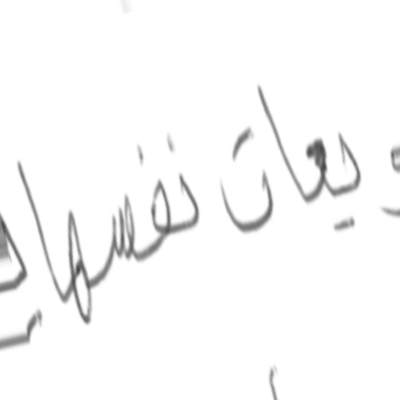 ويعات نفسها